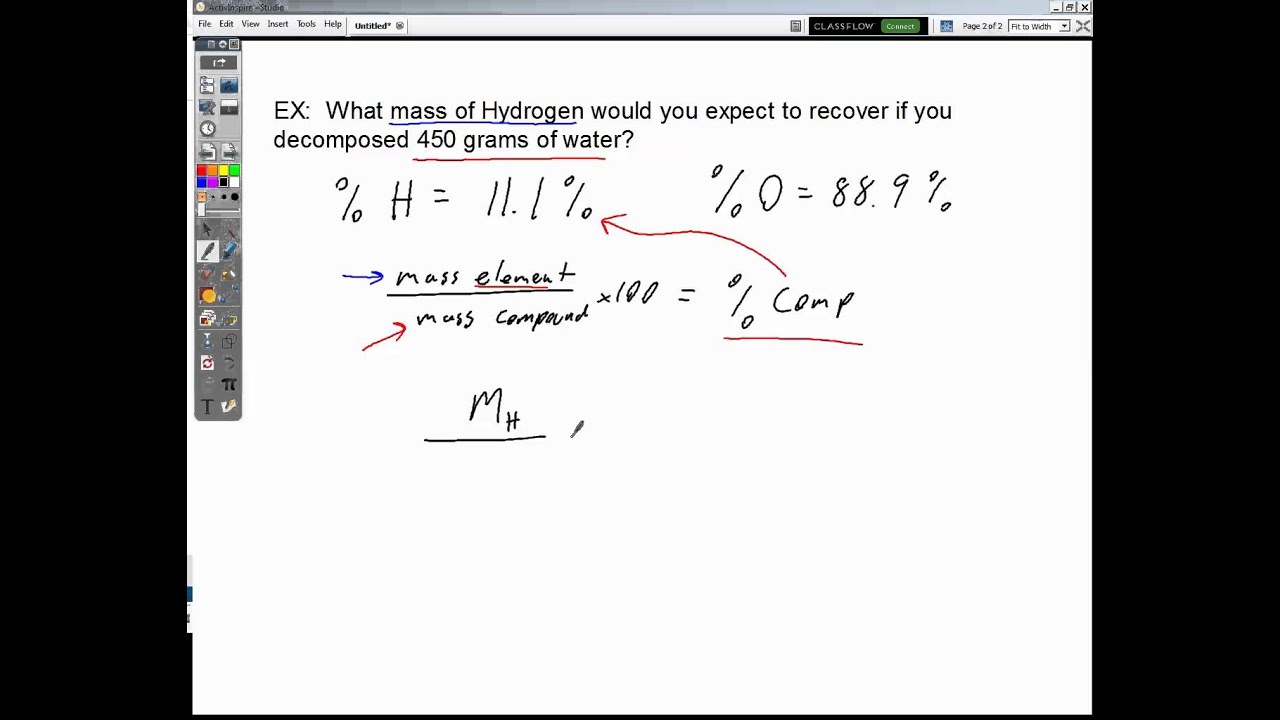 ActivInspire - Studio
File Edit View Insert Tools Help Untitled* CLASSFLOW Connect Page 2 of 2 Fit to Width
EX: What mass of Hydrogen would you expect to recover if you
decomposed 450 grams of water?
% H = 11.1% % O = 88.9%
mass element
mass compound ×100 = % Comp
M_H